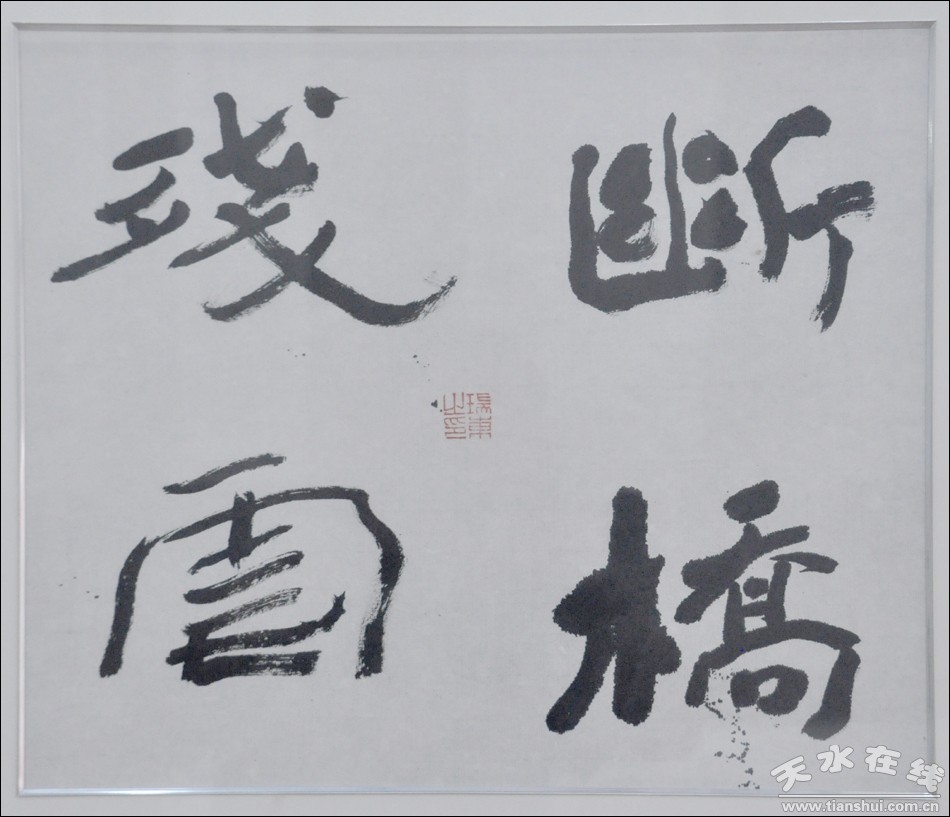 斷橋
殘雪
東
之印
天水在线
www.tianshui.com.cn